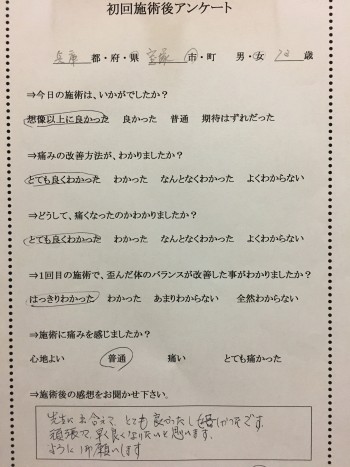 初回施術後アンケート
兵庫 都・府・県 宝塚 市・町 男・女 歳
⇒今日の施術は、いかがでしたか？
想像以上に良かった 良かった 普通 期待はずれだった
⇒痛みの改善方法が、わかりましたか？
とても良くわかった わかった なんとなくわかった よくわからない
⇒どうして、痛くなったのかわかりましたか？
とても良くわかった わかった なんとなくわかった よくわからない
⇒1回目の施術で、歪んだ体のバランスが改善した事がわかりましたか？
はっきりわかった わかった あまりわからない 全然わからない
⇒施術に痛みを感じましたか？
心地よい 普通 痛い とても痛かった
⇒施術後の感想をお聞かせ下さい。
先生に出合えて、とても良かったし嬉しかったです。
頑張って、早く良くなりたいと思います。
ように御願いします